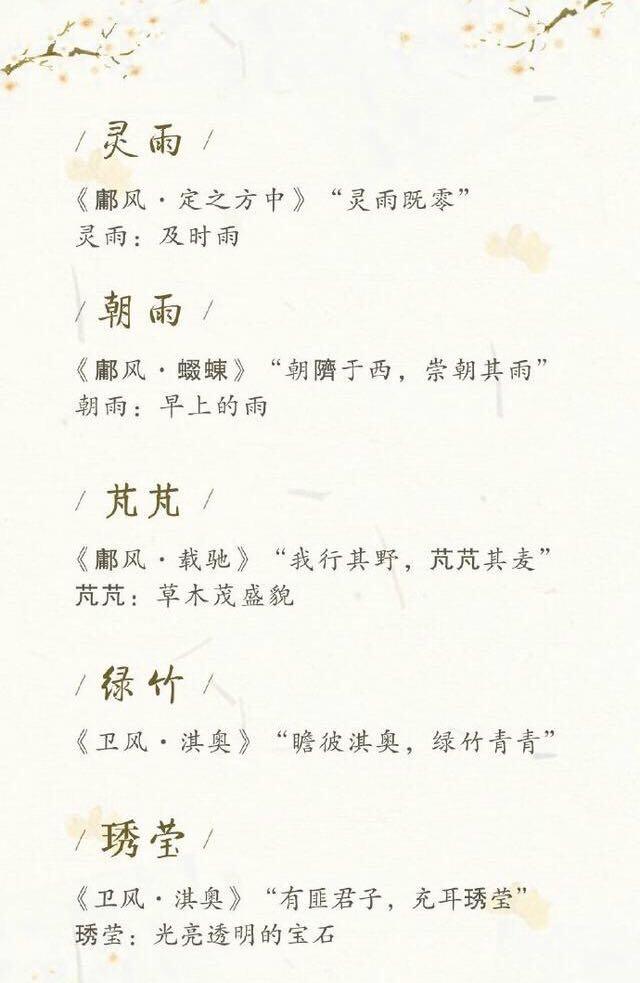 / 灵雨 /
《鄘风·定之方中》“灵雨既零”
灵雨：及时雨
/ 朝雨 /
《鄘风·蝃蝀》“朝隮于西，崇朝其雨”
朝雨：早上的雨
/ 芃芃 /
《鄘风·载驰》“我行其野，芃芃其麦”
芃芃：草木茂盛貌
/ 绿竹 /
《卫风·淇奥》“瞻彼淇奥，绿竹青青”
/ 琇莹 /
《卫风·淇奥》“有匪君子，充耳琇莹”
琇莹：光亮透明的宝石